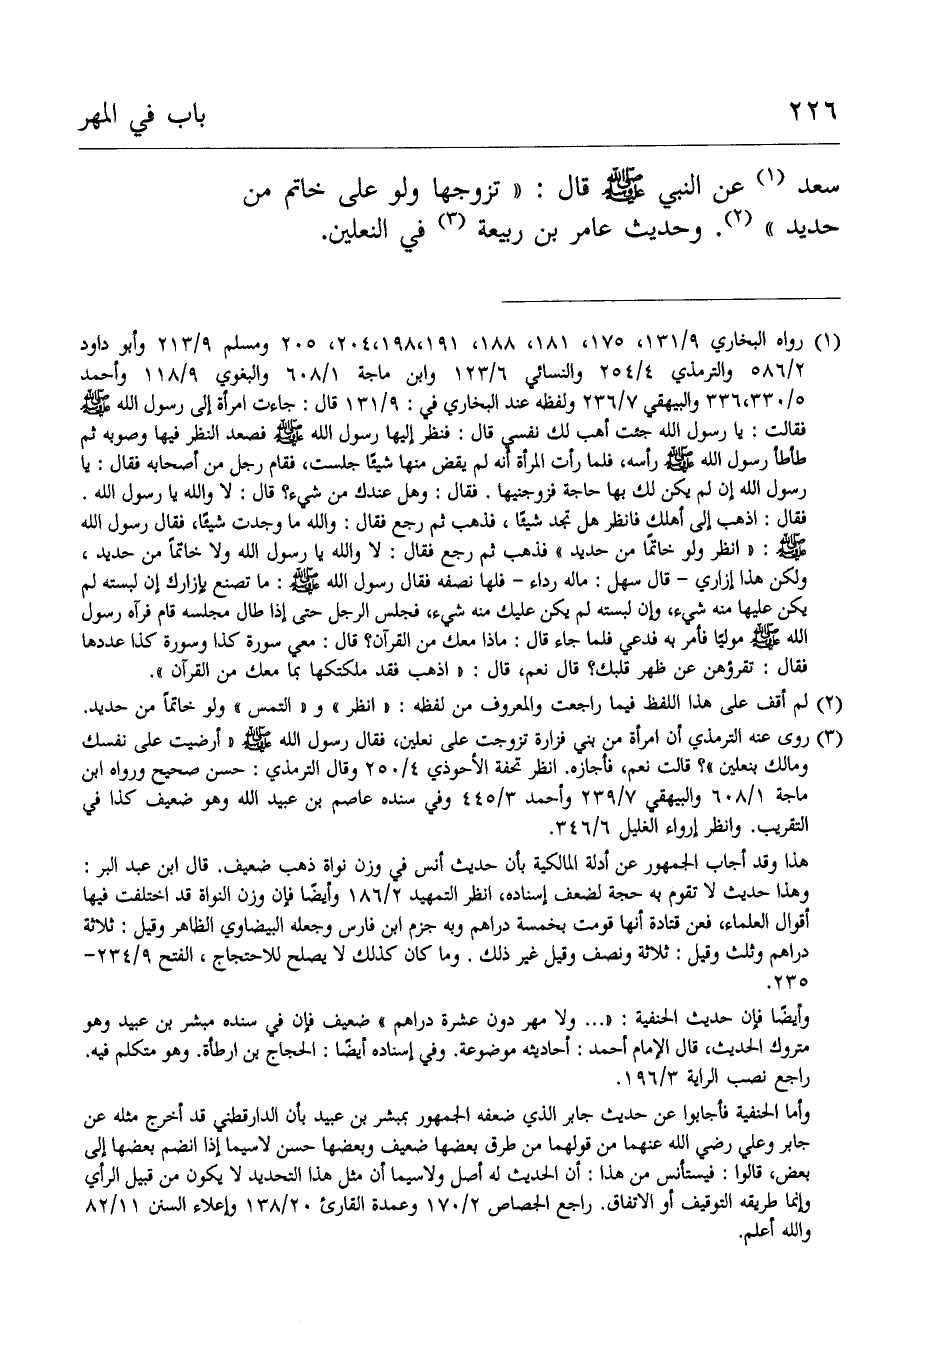 ٢٢٦
باب في المهر
سعد (١) عن النبي ﷺ قال : « تزوجها ولو على خاتم من
حديد » (٢). وحديث عامر بن ربيعة (٣) في النعلين.
(١) رواه البخاري ١٣١/٩، ١٧٥، ١٨١، ١٨٨، ١٩١،١٩٨،٢٠٤، ٢٠٥ ومسلم ٢١٣/٩ وأبو داود
٥٨٦/٢ والترمذي ٢٥٤/٤ والنسائي ١٢٣/٦ وابن ماجة ٦٠٨/١ والبغوي ١١٨/٩ وأحمد
٣٣٦،٣٣٠/٥ والبيهقي ٢٣٦/٧ ولفظه عند البخاري في : ١٣١/٩ قال : جاءت امرأة إلى رسول الله ﷺ
فقالت : يا رسول الله جئت أهب لك نفسي قال : فنظر إليها رسول الله ﷺ فصعد النظر فيها وصوبه ثم
طأطأ رسول الله ﷺ رأسه، فلما رأت المرأة أنه لم يقض منها شيئًا جلست، فقام رجل من أصحابه فقال : يا
رسول الله إن لم يكن لك بها حاجة فزوجنيها . فقال : وهل عندك من شيء؟ قال : لا والله يا رسول الله .
فقال : اذهب إلى أهلك فانظر هل تجد شيئًا ، فذهب ثم رجع فقال : والله ما وجدت شيئًا، فقال رسول الله
ﷺ : « انظر ولو خاتمًا من حديد » فذهب ثم رجع فقال : لا والله يا رسول الله ولا خاتماً من حديد ،
ولكن هذا إزاري – قال سهل : ماله رداء – فلها نصفه فقال رسول الله ﷺ : ما تصنع بإزارك إن لبسته لم
يكن عليها منه شيء، وإن لبسته لم يكن عليك منه شيء، فجلس الرجل حتى إذا طال مجلسه قام فرآه رسول
الله ﷺ موليًا فأمر به فدعي فلما جاء قال : ماذا معك من القرآن؟ قال : معي سورة كذا وسورة كذا عددها
فقال : تقرؤهن عن ظهر قلبك؟ قال نعم، قال : « اذهب فقد ملكتكها بما معك من القرآن ».
(٢) لم أقف على هذا اللفظ فيما راجعت والمعروف من لفظه : « انظر » و « التمس » ولو خاتماً من حديد.
(٣) روى عنه الترمذي أن امرأة من بني فزارة تزوجت على نعلين، فقال رسول الله ﷺ « أرضيت على نفسك
ومالك بنعلين »؟ قالت نعم، فأجازه. انظر تحفة الأحوذي ٢٥٠/٤ وقال الترمذي : حسن صحيح ورواه ابن
ماجة ٦٠٨/١ والبيهقي ٢٣٩/٧ وأحمد ٤٤٥/٣ وفي سنده عاصم بن عبيد الله وهو ضعيف كذا في
التقريب. وانظر إرواء الغليل ٣٤٦/٦.
هذا وقد أجاب الجمهور عن أدلة المالكية بأن حديث أنس في وزن نواة ذهب ضعيف. قال ابن عبد البر :
وهذا حديث لا تقوم به حجة لضعف إسناده، انظر التمهيد ١٨٦/٢ وأيضًا فإن وزن النواة قد اختلفت فيها
أقوال العلماء، فعن قتادة أنها قومت بخمسة دراهم وبه جزم ابن فارس وجعله البيضاوي الظاهر وقيل : ثلاثة
دراهم وثلث وقيل : ثلاثة ونصف وقيل غير ذلك . وما كان كذلك لا يصلح للاحتجاج ، الفتح ٢٣٤/٩–
٢٣٥.
وأيضًا فإن حديث الحنفية : «... ولا مهر دون عشرة دراهم » ضعيف فإن في سنده مبشر بن عبيد وهو
متروك الحديث، قال الإمام أحمد : أحاديثه موضوعة. وفي إسناده أيضًا : الحجاج بن ارطأة. وهو متكلم فيه.
راجع نصب الراية ١٩٦/٣.
وأما الحنفية فأجابوا عن حديث جابر الذي ضعفه الجمهور بمبشر بن عبيد بأن الدارقطني قد أخرج مثله عن
جابر وعلي رضي الله عنهما من قولهما من طرق بعضها ضعيف وبعضها حسن لاسيما إذا انضم بعضها إلى
بعض، قالوا : فيستأنس من هذا : أن الحديث له أصل ولاسيما أن مثل هذا التحديد لا يكون من قبيل الرأي
وإنما طريقه التوقيف أو الاتفاق. راجع الجصاص ١٧٠/٢ وعمدة القارئ ١٣٨/٢٠ وإعلاء السنن ٨٢/١١
والله أعلم.